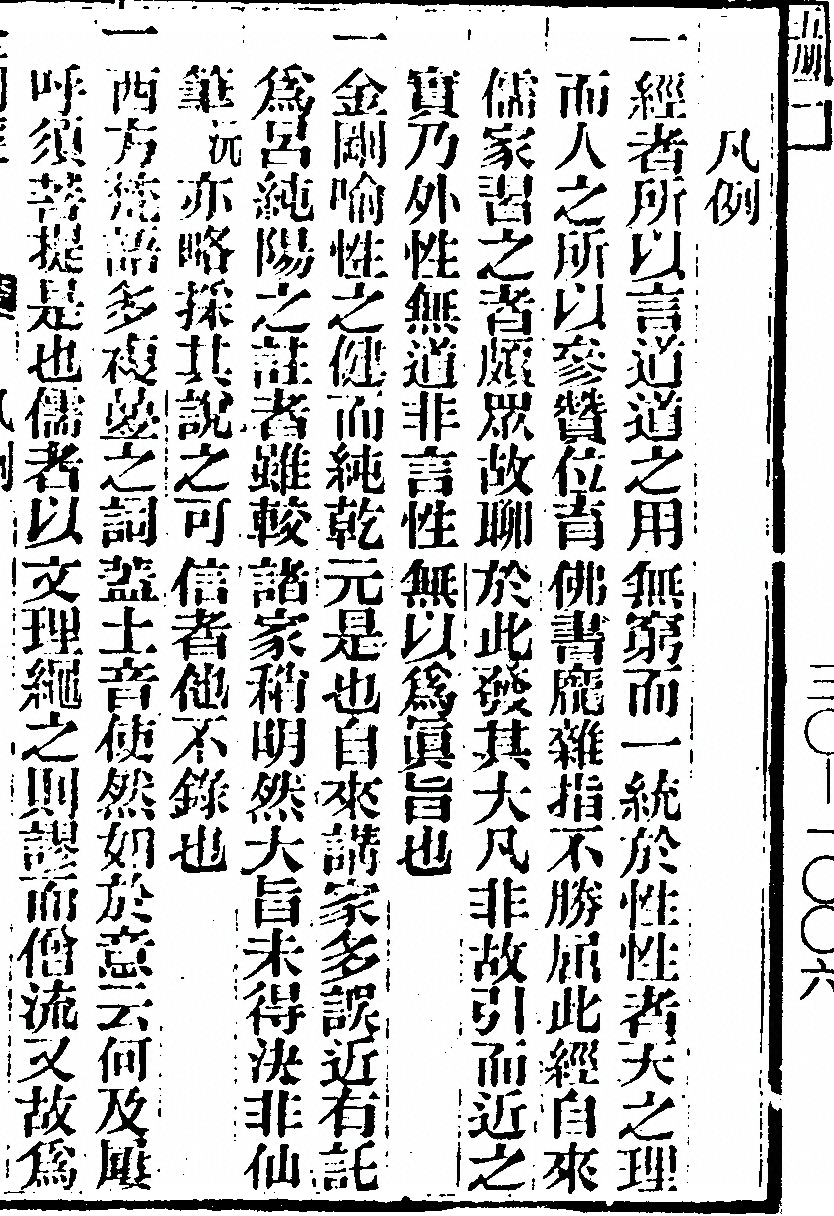 凡例
一經者所以言道道之用無窮而一統於性性者天之理
而人之所以參贊位育佛書龐雜指不勝屈此經自來
儒家習之者頗眾故聊於此發其大凡非故引而近之
實乃外性無道非言性無以爲眞旨也
一金剛喻性之健而純乾元是也自來講家多誤近有託
爲呂純陽之註者雖較諸家稍明然大旨未得決非仙
筆沅亦略採其說之可信者他不錄也
一西方梵語多複沓之詞葢土音使然如於意云何及屢
呼須菩提是也儒者以文理繩之則謬而僧流又故爲
三〇—一〇〇六